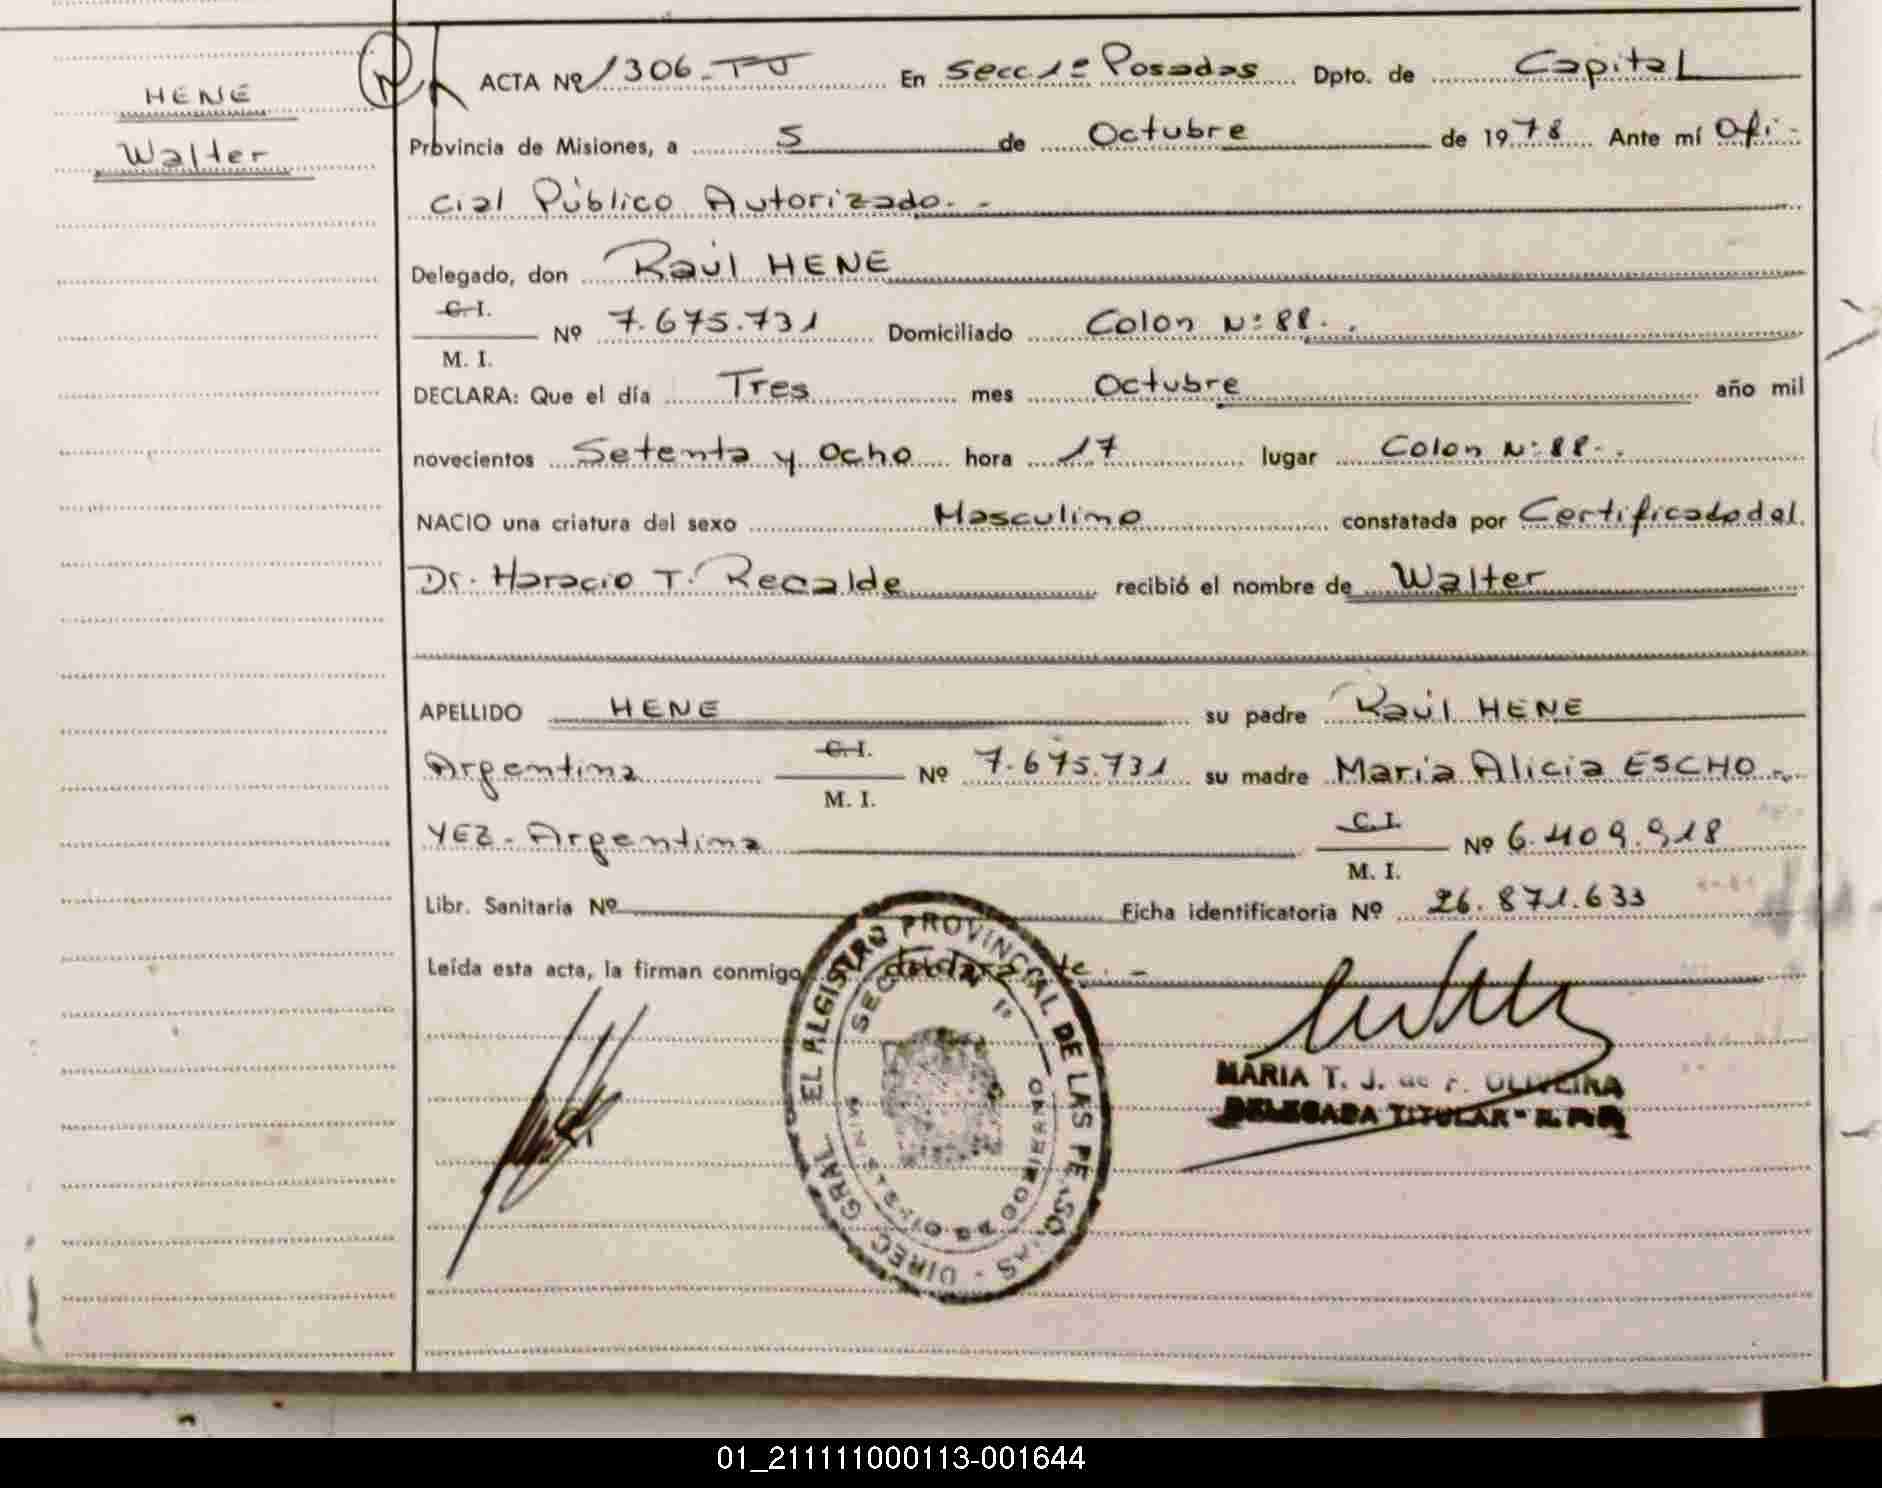 HENE
Walter
ACTA Nº 1306-TJ En Secc 1ª Posadas Dpto. de Capital
Provincia de Misiones, a 5 de Octubre de 1978 Ante mí Ofi-
cial Público Autorizado. -
Delegado, don Raúl HENE
C. I.
M. I.
Nº 7.675.731 Domiciliado Colon Nº 88. .
DECLARA: Que el día Tres mes Octubre año mil
novecientos Setenta y Ocho hora 17 lugar Colon Nº 88. .
NACIO una criatura del sexo Masculino constatada por Certificado del
Dr. Horacio T. Recalde recibió el nombre de Walter
APELLIDO HENE su padre Raúl HENE
Argentina C. I. M. I. Nº 7.675.731 su madre María Alicia ESCHO-
YEZ- Argentina C. I. M. I. Nº 6.409.918
Libr. Sanitaria Nº Ficha identificatoria Nº 26.871.633
Leída esta acta, la firman conmigo
DIREC. GRAL. PROVINCIAL DE LAS
MARIA T. J. de F. OLIVEIRA
DELEGADA TITULAR
01_211111000113-001644